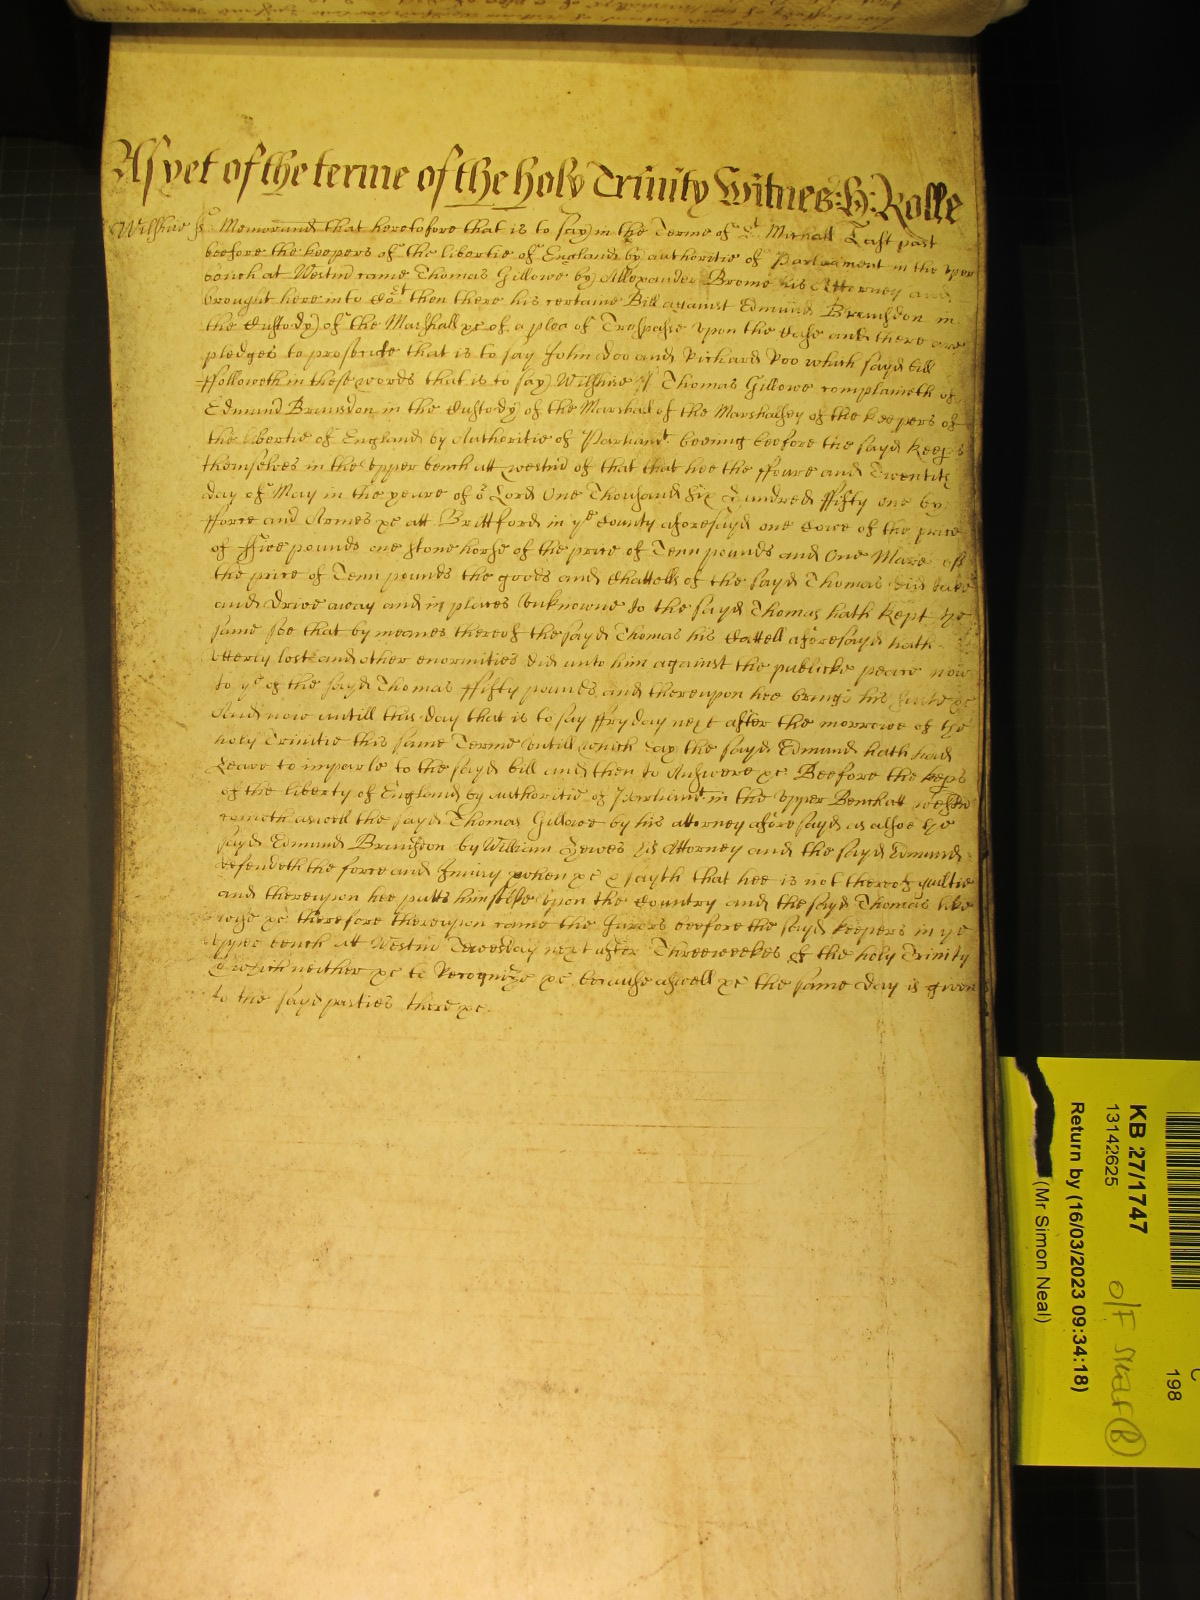 As yet of the terme of the holy Trinity Witnes: H: Rolle
Wilshire ss Memorand that heretofore that is to say in the Terme of St Michall Last past
beefore the keepers of the libertie of England by authoritie of Parliament in the vper
bench at Westm came Thomas Gillowe by Allexander Brome his Attorney and
brought here into Cort then there his certaine Bill against Edmund Brunsdon in
the Custody of the Marshall &c of a plea of Trespasse vpon the Case and there are
pledges to prosecute that is to say John Doo and Richard Roo which sayd bill
ffolloweth in these words that is to say Wilshire ss Thomas Gillowe complaineth of
Edmund Brunsdon in the Custody of the Marshall of the Marshalsey of the keepers of
the libertie of England by Authoritie of Parliamt beeing beefore the sayd keeps
themselves in the vpper bench att westm of that that hee the ffoure and Twentith
day of May in the yeare of or Lord One Thousand six Hundred ffifty one by
fforce and Armes &c att Brittford in ye County aforesayd one Cowe of the price
of ffive pounds one stone horse of the price of Tenn pounds and One Mare of
the price of Tenn pounds the goods and Chattells of the sayd Thomas did take
and drive away and in places vnknowne to the sayd Thomas hath kept the
same soe that by meanes thereof the sayd Thomas his Cattell aforesayd hath
vtterly lost and other enormities did unto him against the publicke peace now
to ye of the sayd Thomas ffifty pounds and thereupon hee brings his suite &c
And now untill this day that is to say ffryday next after the morrowe of the
holy Trinitie this same Terme vntill which day the sayd Edmund hath had
Leave to imparle to the sayd bill and then to Answere &c Beefore the keeps
of the liberty of England by authoritie of Parliamt in the vpper Bench att westm
cometh aswell the sayd Thomas Gillowe by his attorney aforesayd as alsoe the
sayd Edmund Brunsdon by William Hewes his Attorney and the sayd Edmund
defendeth the force and Iniury when &c & sayth that hee is not thereof guiltie
and thereupon hee putts himselfe vpon the Country and the sayd Thomas like
wise &c therefore thereupon came the Jurors beefore the sayd keepers in ye
vpper bench at Westm Tewesday next after Three weekes of the holy Trinity
by which neither &c to Recognize &c because aswell &c the same day is given
to the sayd parties there &c.
KB 27/1747
13142625
Return by (16/03/2023 09:34:18)
(Mr Simon Neal)
198